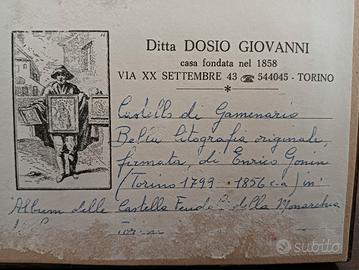 Ditta DOSIO GIOVANNI
casa fondata nel 1858
VIA XX SETTEMBRE 43 ☎ 544045 - TORINO
*
Castello di Gamenario
Bella litografia originale,
firmata, di Enrico Gonin
(Torino 1793 - 1856 c.a) in
"Album delle Castella Feudali della Monarchia
subito